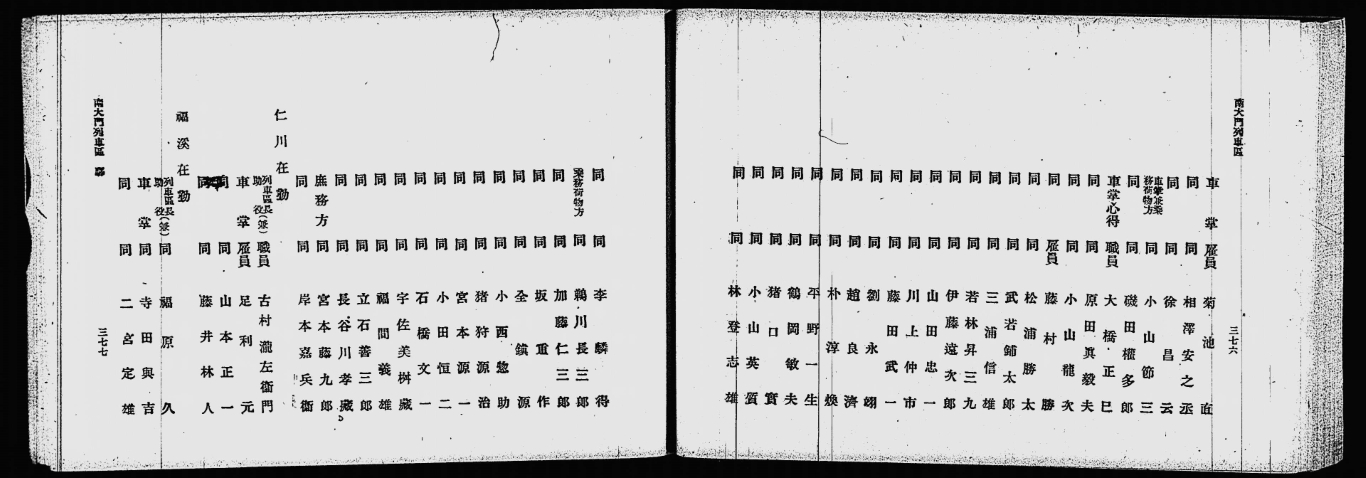 南大門列車區
三七六
車掌 雇員 菊池在
同 同 相澤安之丞
同 同 徐昌云
車掌並乘務荷物方 同 小山節三
同 同 磯田權多郎
車掌心得 職員 大橋正巳
同 同 原田眞毅夫
同 同 小山龍次
同 雇員 藤村勝
同 同 松浦勝太
同 同 武若鉀太郎
同 同 三浦信雄
同 同 若林昇三九
同 同 伊藤遠次郎
同 同 山田忠一
同 同 川上仲市
同 同 藤田武一
同 同 劉永翊
同 同 趙良濟
同 同 朴淳煥
同 同 平野一生
同 同 鶴岡敏夫
同 同 猪口實
同 同 小山英質
同 同 林登志雄
同 同 李麟得
乘務荷物方 同 鵜川長三郎
同 同 加藤仁三郎
同 同 坂重作
同 同 全鎭源
同 同 小西惣助
同 同 猪狩源治
同 同 宮本源一
同 同 小田恒二
同 同 石橋文一
同 同 宇佐美桝藏
同 同 福間義雄
同 同 立石善三郎
同 同 長谷川孝藏
庶務方 同 宮本藤九郎
同 同 岸本嘉兵衞
仁川在勤
列車區長助役(兼) 職員 古村瀧左衞門
車掌 雇員 足利元
同 同 山本正一
同 同 藤井林人
福溪在勤
列車區長助役(兼) 同 福原久
車掌 同 寺田與吉
同 同 二宮定雄
南大門列車區
三七七